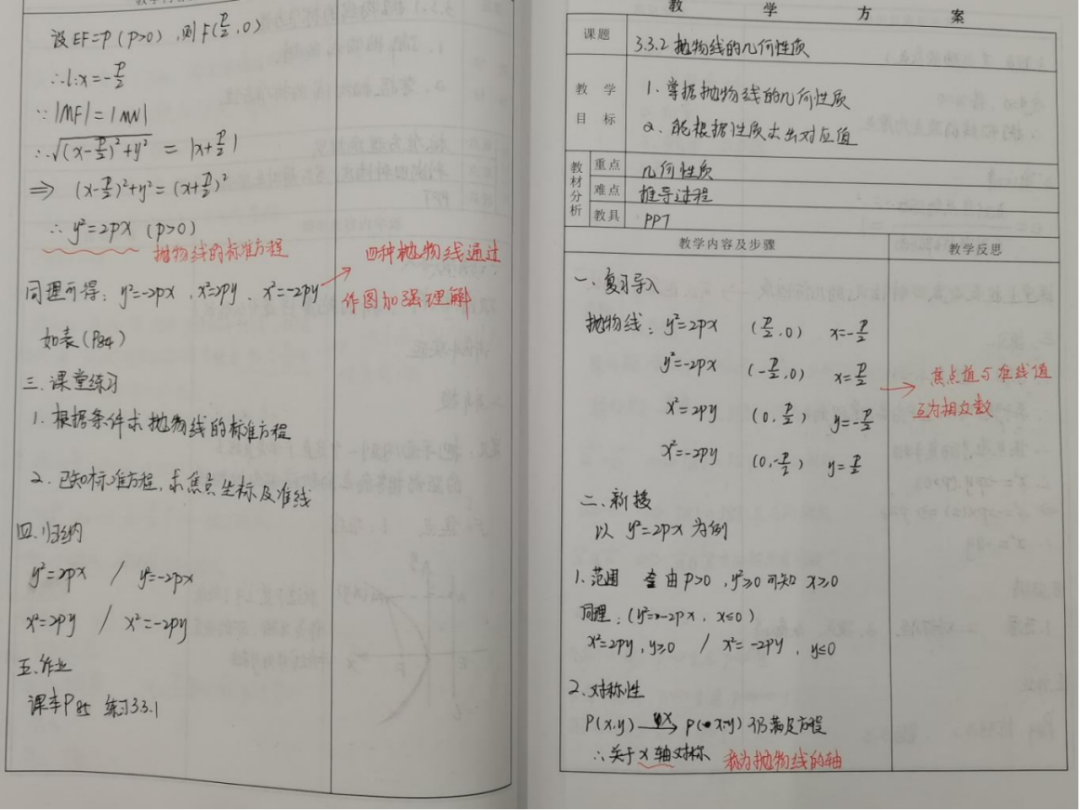 设EF=p(p>0),则F(p/2,0)
∴l:x=-p/2
∵|MF|=|MN|
∴√((x-p/2)²+y²) = |x+p/2|
⇒ (x-p/2)²+y²=(x+p/2)²
∴ y²=2px (p>0)
抛物线的标准方程
同理可得: y²=-2px , x²=2py , x²=-2py
四种抛物线通过
作图加强理解
如表(P84)
三.课堂练习
1.根据条件求抛物线的标准方程
2.已知标准方程,求焦点坐标及准线
四.归纳
y²=2px / y²=-2px
x²=2py / x²=-2py
五.作业
课本P85 练习3.3.1
教 学 方 案
课题 3.3.2 抛物线的几何性质
教学目标
1.掌握抛物线的几何性质
2.能根据性质求出对应值
教材分析
重点 几何性质
难点 推导过程
教具 PPT
教学内容及步骤 教学反思
一.复习导入
抛物线: y²=2px (p/2,0) x=-p/2
y²=-2px (-p/2,0) x=p/2
x²=2py (0,p/2) y=-p/2
x²=-2py (0,-p/2) y=p/2
焦点值与准线值
互为相反数
二.新授
以 y²=2px 为例
1.范围 由p>0,y²≥0可知 x≥0
同理:(y²=-2px, x≤0)
x²=2py,y≥0 / x²=-2py, y≤0
2.对称性
P(x,y) → P(x,-y)仍满足方程
∴关于x轴对称 称为抛物线的轴